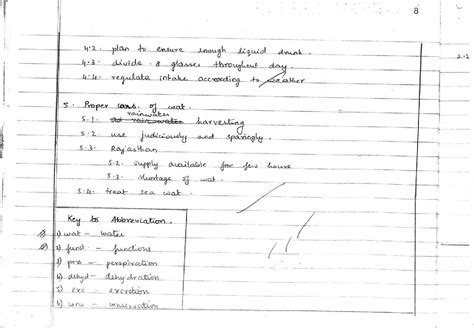 8
4.2. plan to ensure enough liquid drunk.
4.3. divide 8 glasses throughout day.
4.4. regulate intake according to weather
2.2
5. Proper cons. of wat.
5.1. rainwater harvesting
5.2. use judiciously and sparingly.
5.3. Rajasthan
5.2. supply available for few hours
5.3. shortage of wat.
5.4. treat sea wat.
Key to Abbreviation.
1) wat – water
2) funct – functions
3) pers – perspiration
4) dehyd – dehydration
5) exc – excretion
6) cons – conservation